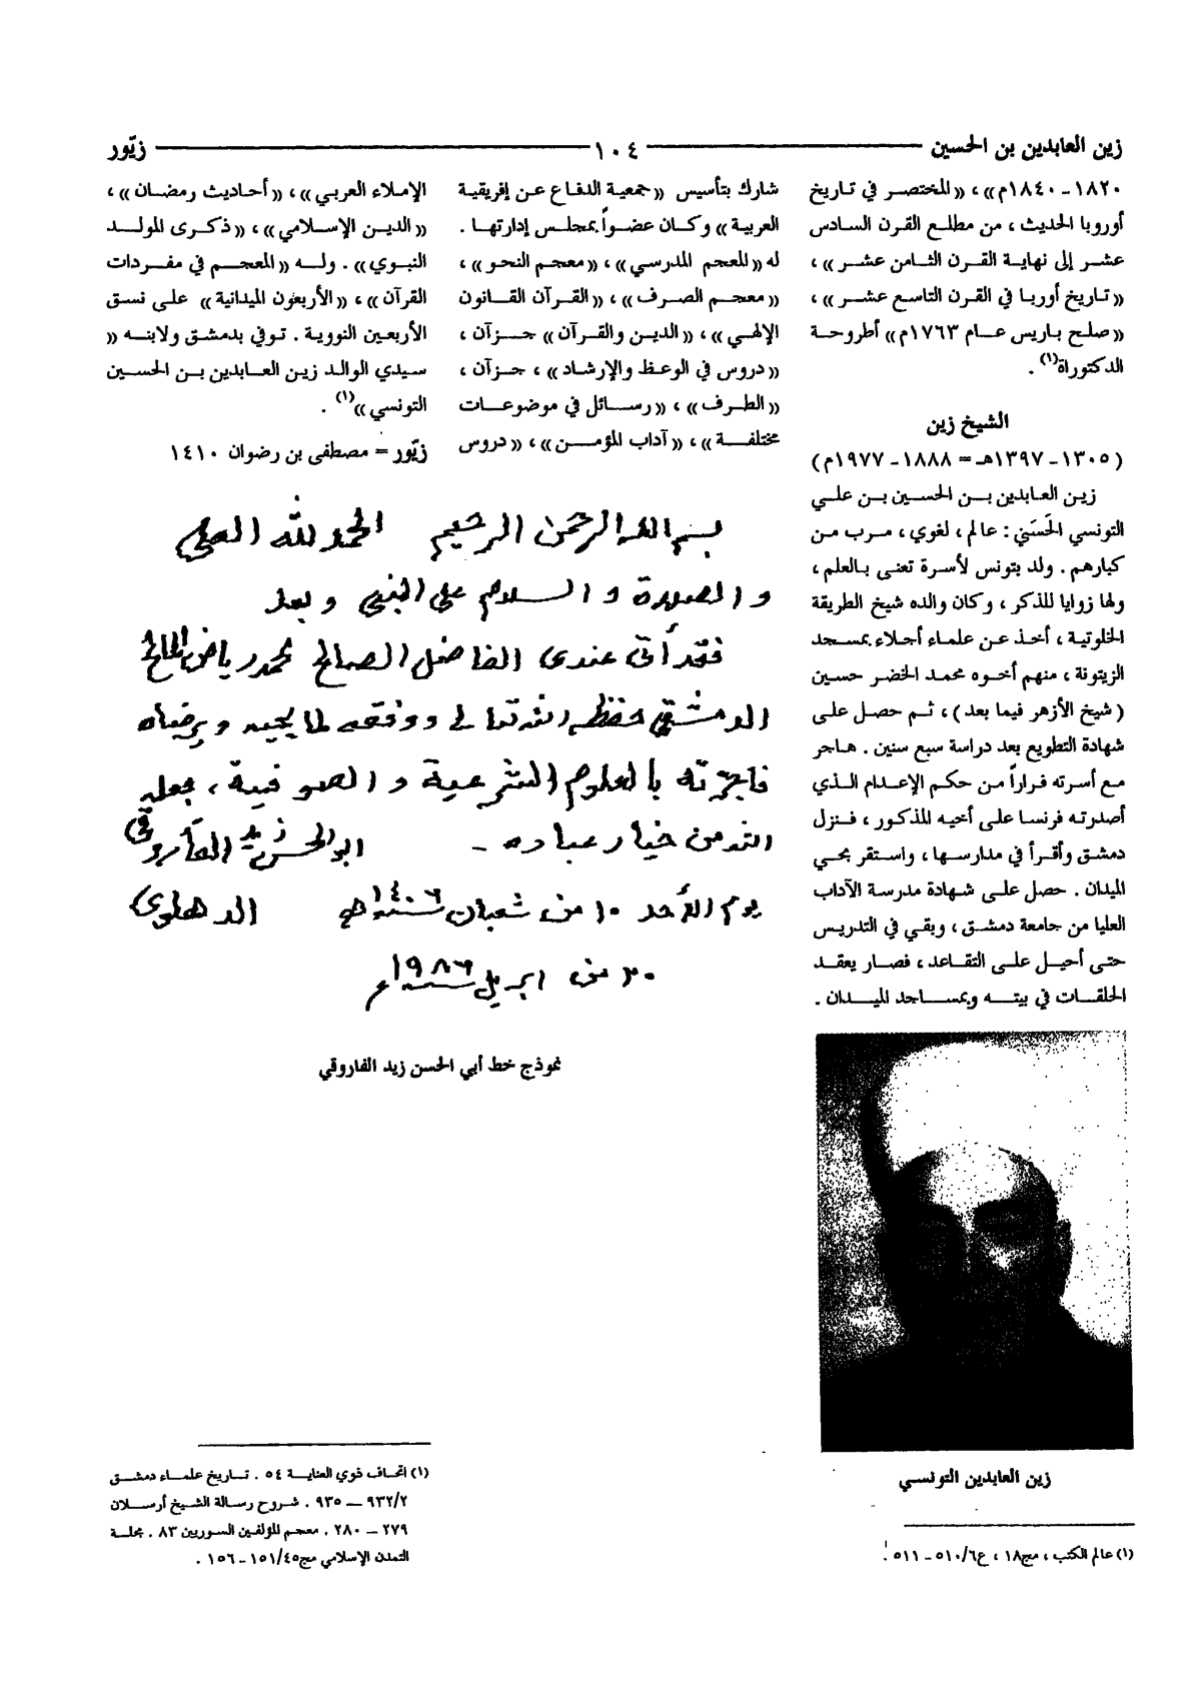 زين العابدين بن الحسين ١٠٤ زيّور
١٨٢٠ - ١٨٤٠م» ، «المختصر في تاريخ
أوروبا الحديث ، من مطلع القرن السادس
عشر إلى نهاية القرن الثامن عشر» ،
«تاريخ أوربا في القرن التاسع عشر» ،
«صلح باريس عام ١٧٦٣م» أطروحة
الدكتوراة(١) .
الشيخ زين
(١٣٠٥ - ١٣٩٧هـ = ١٨٨٨ - ١٩٧٧م)
زين العابدين بن الحسين بن علي
التونسي الحَسَني : عالم ، لغوي ، مرب من
كبارهم . ولد بتونس لأسرة تعنى بالعلم ،
ولها زوايا للذكر ، وكان والده شيخ الطريقة
الخلوتية ، أخذ عن علماء أجلاء بمسجد
الزيتونة ، منهم أخوه محمد الخضر حسين
(شيخ الأزهر فيما بعد) ، ثم حصل على
شهادة التطويع بعد دراسة سبع سنين . هاجر
مع أسرته فراراً من حكم الإعدام الذي
أصدرته فرنسا على أخيه المذكور ، فنزل
دمشق وأقرأ في مدارسها ، واستقر بحي
الميدان . حصل على شهادة مدرسة الآداب
العليا من جامعة دمشق ، وبقي في التدريس
حتى أحيل على التقاعد ، فصار يعقد
الحلقات في بيته وبمساجد الميدان .
زين العابدين التونسي
(١) عالم الكتب ، مج١٨ ، ع٥١٠/٦ - ٥١١ .
شارك بتأسيس «جمعية الدفاع عن إفريقية
العربية» وكان عضواً بمجلس إدارتها .
له «المعجم المدرسي» ، «معجم النحو» ،
«معجم الصرف» ، «القرآن القانون
الإلهي» ، «الدين والقرآن» جزآن ،
«دروس في الوعظ والإرشاد» ، جزآن ،
«الطرف» ، «رسائل في موضوعات
مختلفة» ، «آداب المؤمن» ، «دروس
الإملاء العربي» ، «أحاديث رمضان» ،
«الدين الإسلامي» ، «ذكرى المولد
النبوي» . وله «المعجم في مفردات
القرآن» ، «الأربعون الميدانية» على نسق
الأربعين النووية . توفي بدمشق ولابنه «
سيدي الوالد زين العابدين بن الحسين
التونسي»(١) .
زيّور = مصطفى بن رضوان ١٤١٠
بسم الله الرحمن الرحيم الحمد لله العلي
والصلاة والسلام على النبي وبعد
فقد أتى عندى الفاضل الصالح محمد رياض المالح
الدمشقي حفظه الله تعالى ووفقه لما يحبه ويرضاه
فأجزته بالعلوم الشرعية والصوفية ، جعله
الله من خيار عباده - ابو الحسن زيد الفاروقي
يوم الأحد ١٠ من شعبان سنة ١٤٠٦هـ الدهلوي
٢٠ من ابريل سنة ١٩٨٦م
نموذج خط أبي الحسن زيد الفاروقي
(١) اتحاف ذوي العناية ٥٤ . تاريخ علماء دمشق
٩٣٢/٢ — ٩٣٥ . شروح رسالة الشيخ أرسلان
٢٧٩ — ٢٨٠ . معجم المؤلفين السوريين ٨٣ . مجلة
التمدن الإسلامي مج١٥١/٤٥ - ١٥٦ .